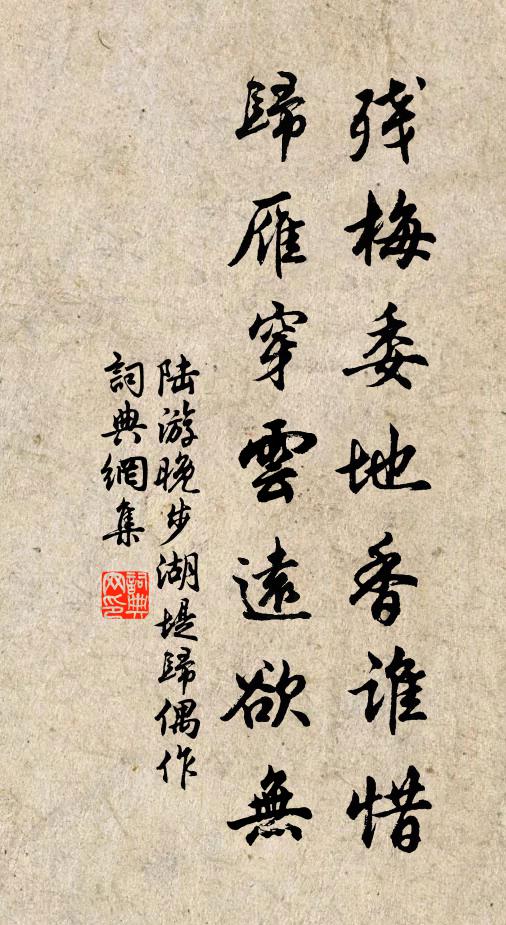 残梅委地香谁惜
歸雁穿雲遠欲無
陆游晚步湖堤歸偶作
詞典網集
詞典网印